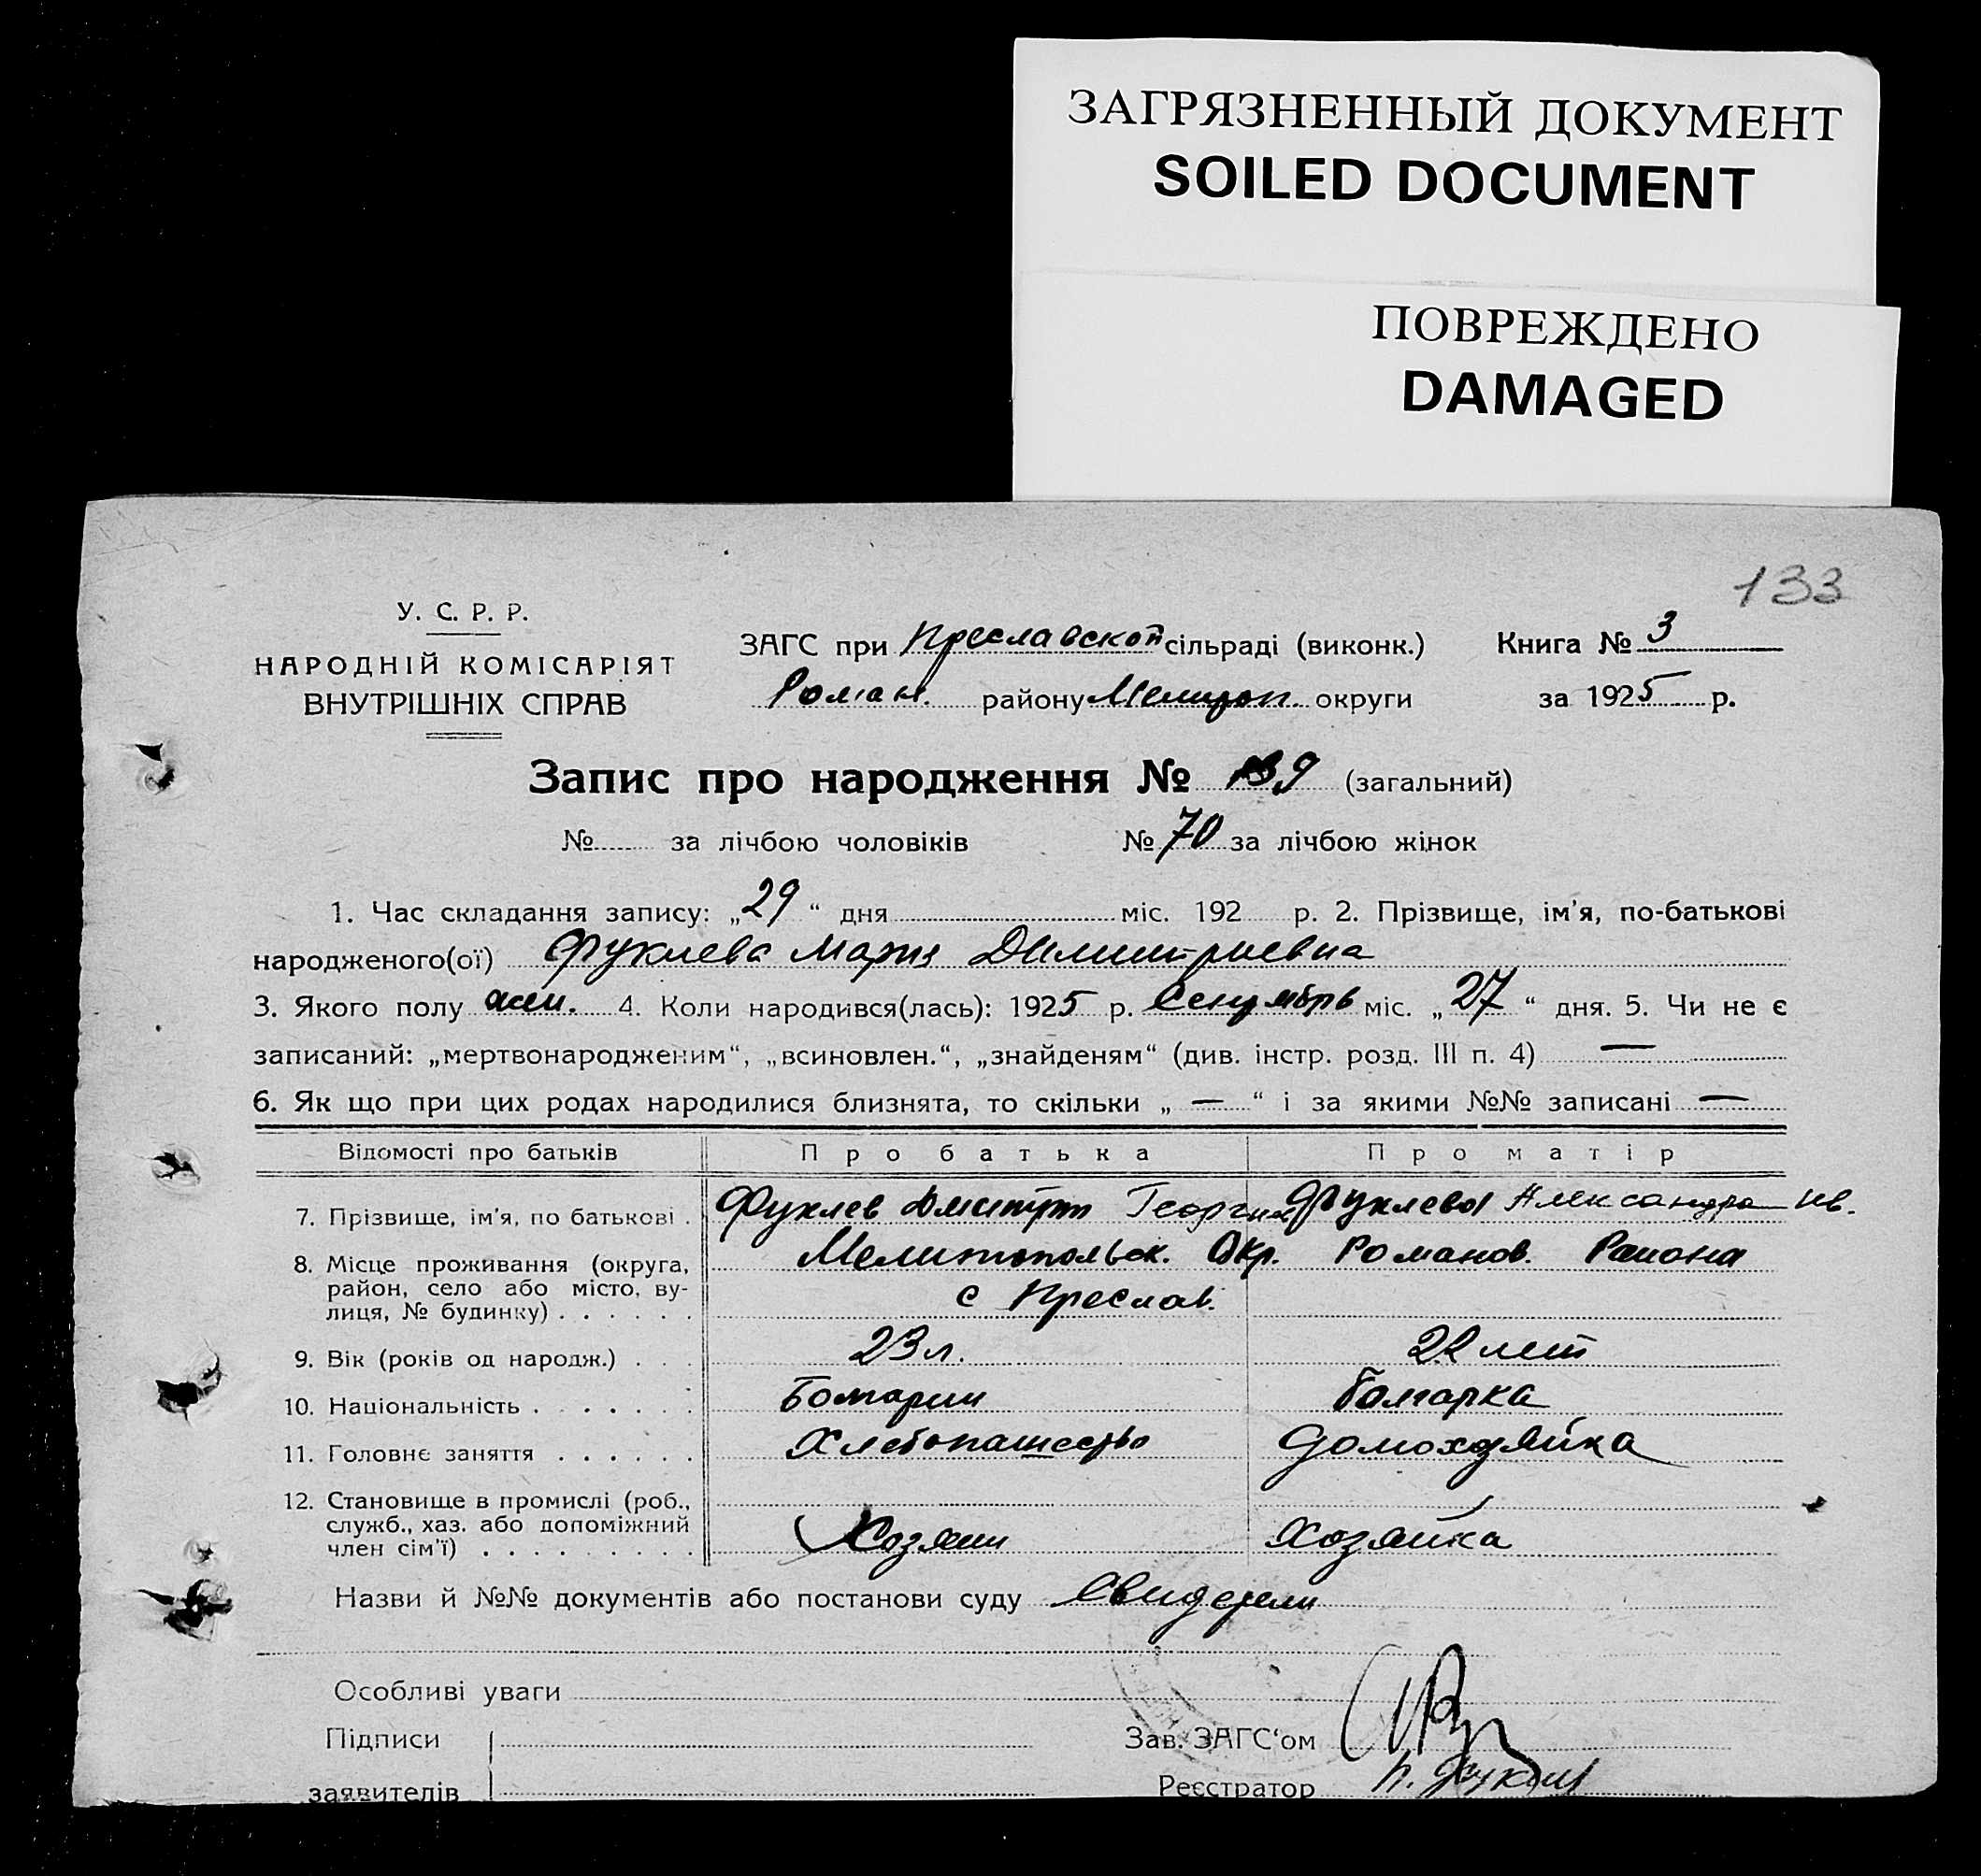 ЗАГРЯЗНЕННЫЙ ДОКУМЕНТ
SOILED DOCUMENT
ПОВРЕЖДЕНО
DAMAGED
133
У. С. Р. Р.
НАРОДНІЙ КОМІСАРІЯТ
ВНУТРІШНІХ СПРАВ
ЗАГС при Преславской сільраді (виконк.) Книга № 3
Роман. району Мелитоп. округи за 1925 р.
Запис про народження № 139 (загальний)
№ за лічбою чоловіків № 70 за лічбою жінок
1. Час складання запису: „29“ дня міс. 192 р. 2. Прізвище, ім'я, по-батькові
народженого(ої) Фуклева Мария Димитриевна
3. Якого полу жен. 4. Коли народився(лась): 1925 р. Сентябрь міс. „27“ дня. 5. Чи не є
записаний: „мертвонародженим“, „всиновлен.“, „знайденям“ (див. інстр. розд. III п. 4) —
6. Як що при цих родах народилися близнята, то скільки „ — “ і за якими №№ записані —
Відомості про батьків Про батька Про матір
7. Прізвище, ім'я, по батькові . Фуклев Дмитрий Георгиев Фуклева Александра Ив.
8. Місце проживання (округа, Мелитопольск. Окр. Романов. Района
район, село або місто, ву-
лиця, № будинку) . . . . . . с Преслав.
9. Вік (років од народж.) . . . 23 л. 22 лет
10. Національність . . . . . . . Болгарин болгарка
11. Головнє заняття . . . . . . Хлебопашество домохозяйка
12. Становище в промислі (роб.,
служб., хаз. або допоміжний
член сім'ї) . . . . . . . . . Хозяин Хозяйка
Назви й №№ документів або постанови суду Свидетели
Особливі уваги
Підписи Зав. ЗАГС'ом
заявителів Реєстратор